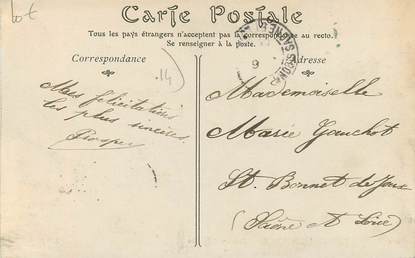 lot
Carte Postale
Tous les pays étrangers n'acceptent pas la correspondance au recto.
Se renseigner à la poste.
Correspondance
Adresse
14
Mes félicitations
les plus sincères.
Prosper
Mademoiselle
Marie Gauchot
St. Bonnet de Joux
(Saône et Loire)